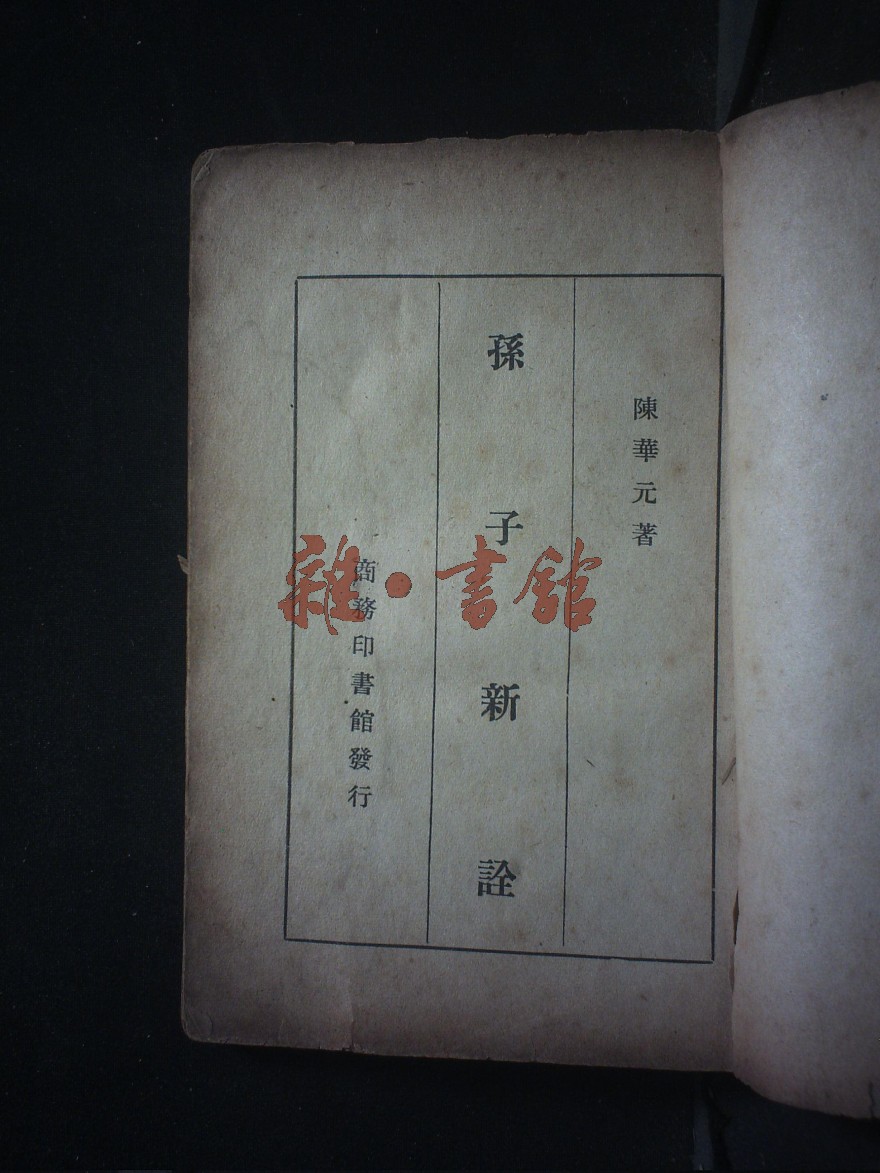 陳華元著
孫子新詮
商務印書館發行
雜·書館